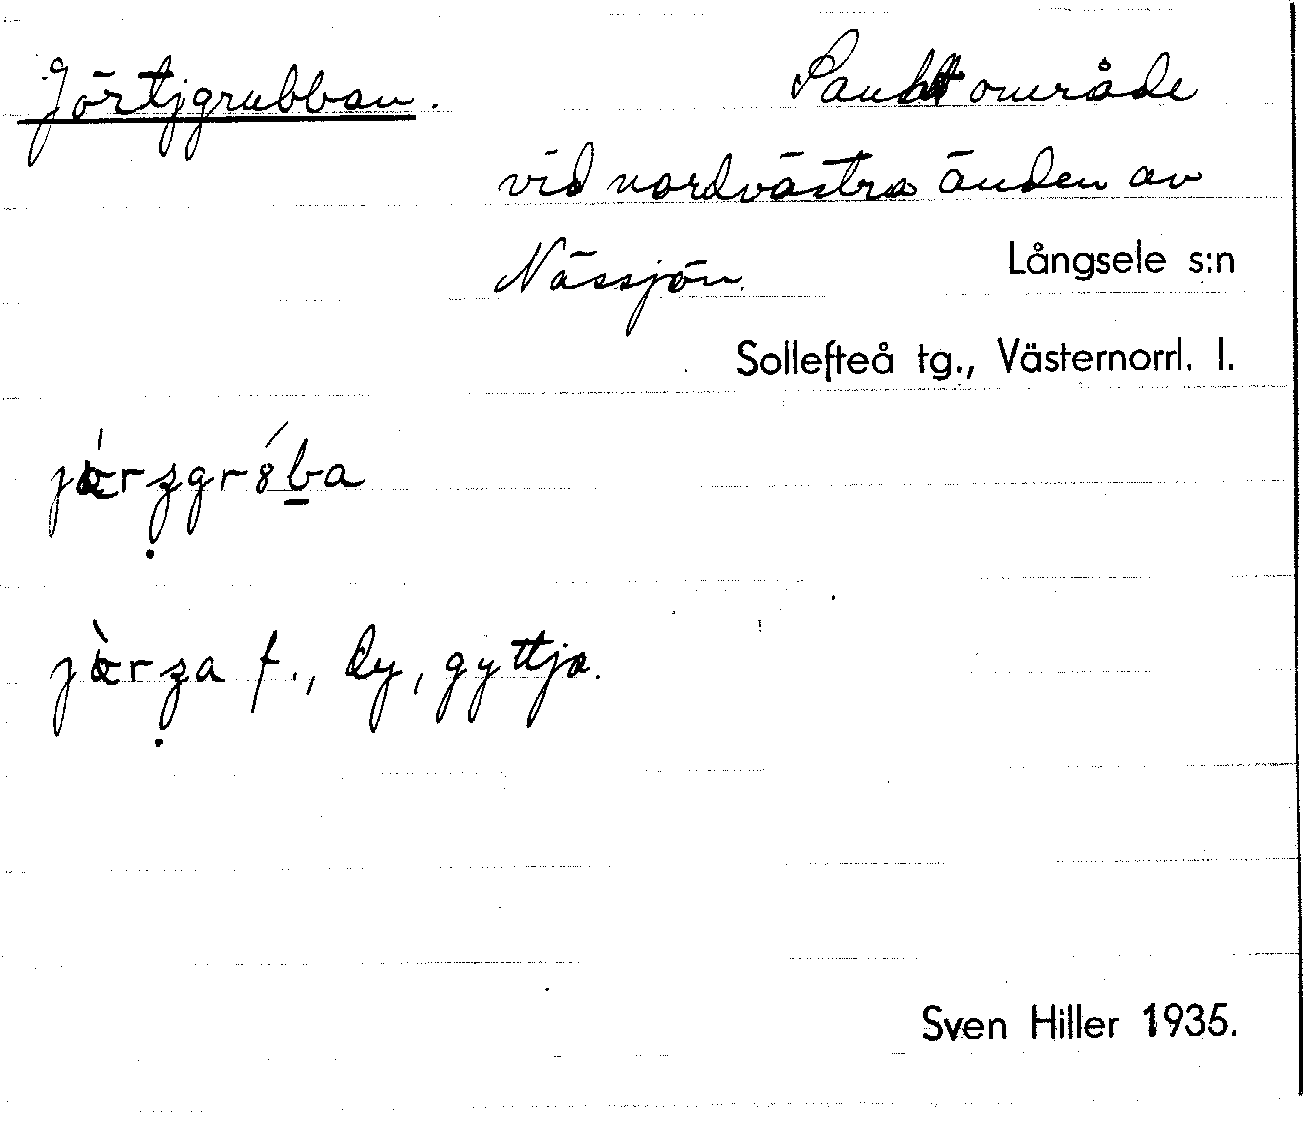 Jörtjgrubban. Sankt område
vid nordvästra änden av
Nässjön. Långsele s:n
Sollefteå tg., Västernorrl. l.
f., dy, gyttja.
Sven Hiller 1935.